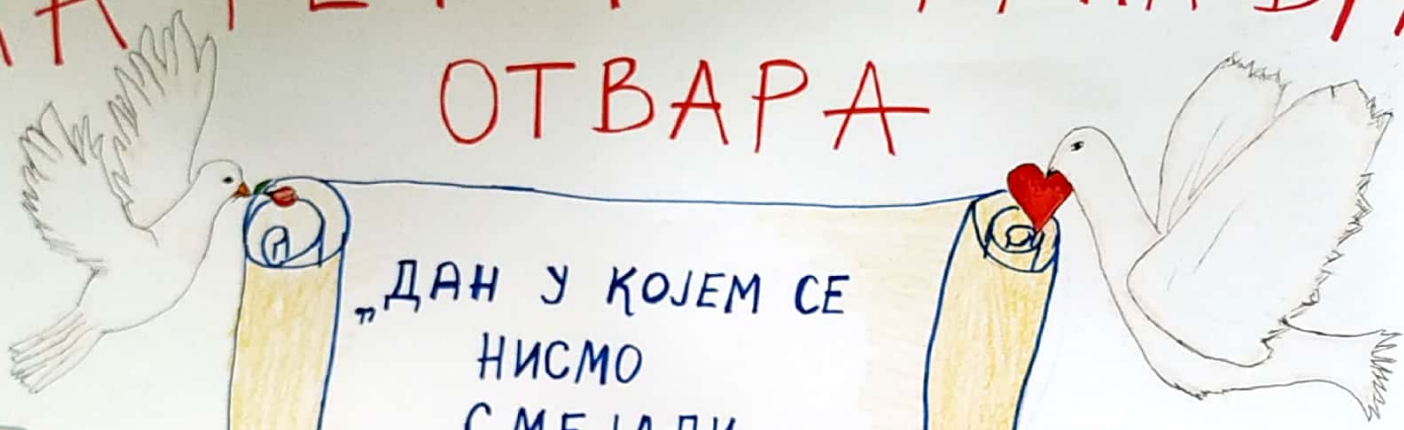 ОТВАРА
„ДАН У КОЈЕМ СЕ
НИСМО
СМЕЈАЛИ